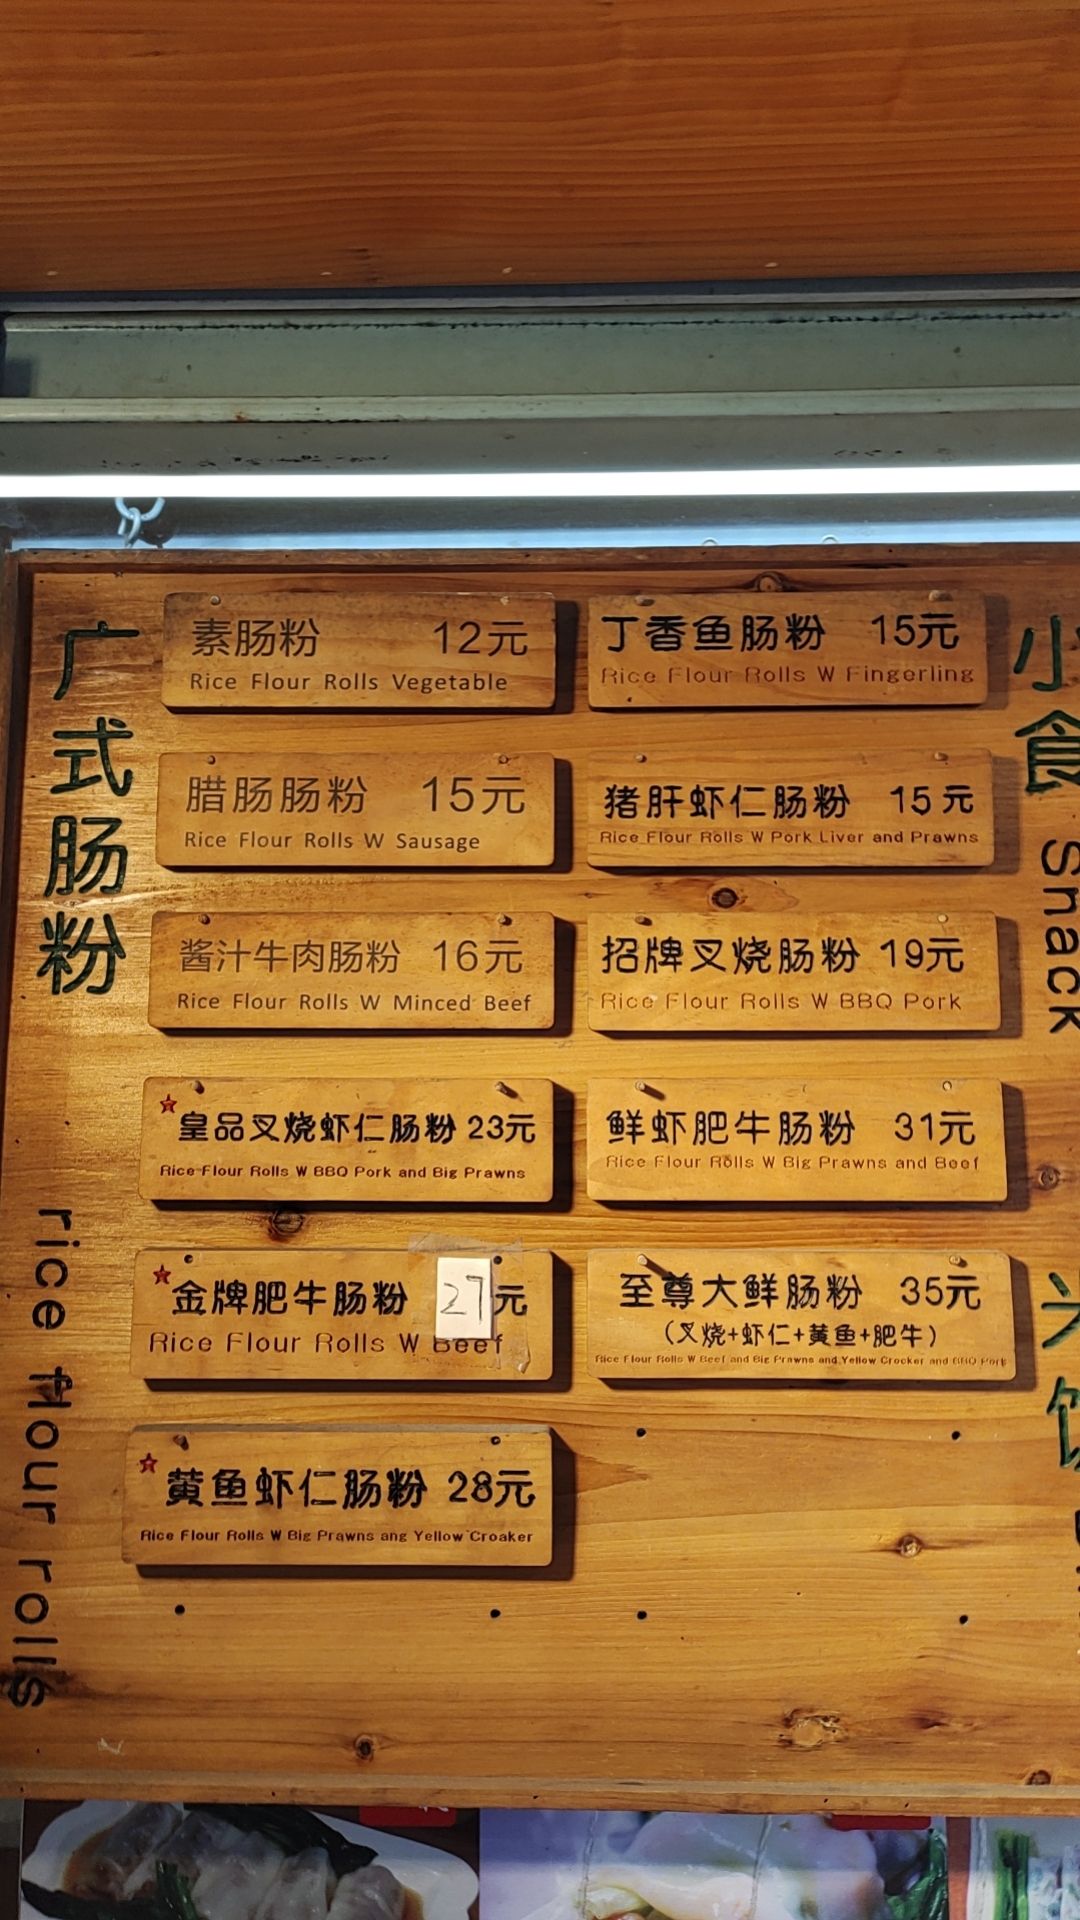 广式肠粉
rice flour rolls
素肠粉 12元
Rice Flour Rolls Vegetable
腊肠肠粉 15元
Rice Flour Rolls W Sausage
酱汁牛肉肠粉 16元
Rice Flour Rolls W Minced Beef
皇品叉烧虾仁肠粉 23元
Rice Flour Rolls W BBQ Pork and Big Prawns
金牌肥牛肠粉 27元
Rice Flour Rolls W Beef
黄鱼虾仁肠粉 28元
Rice Flour Rolls W Big Prawns ang Yellow Croaker
丁香鱼肠粉 15元
Rice Flour Rolls W Fingerling
猪肝虾仁肠粉 15元
Rice Flour Rolls W Pork Liver and Prawns
招牌叉烧肠粉 19元
Rice Flour Rolls W BBQ Pork
鲜虾肥牛肠粉 31元
Rice Flour Rolls W Big Prawns and Beef
至尊大鲜肠粉 35元
(叉烧+虾仁+黄鱼+肥牛)
Rice Flour Rolls W Beef and Big Prawns and Yellow Crocker and BBQ Pork
小食
Snack